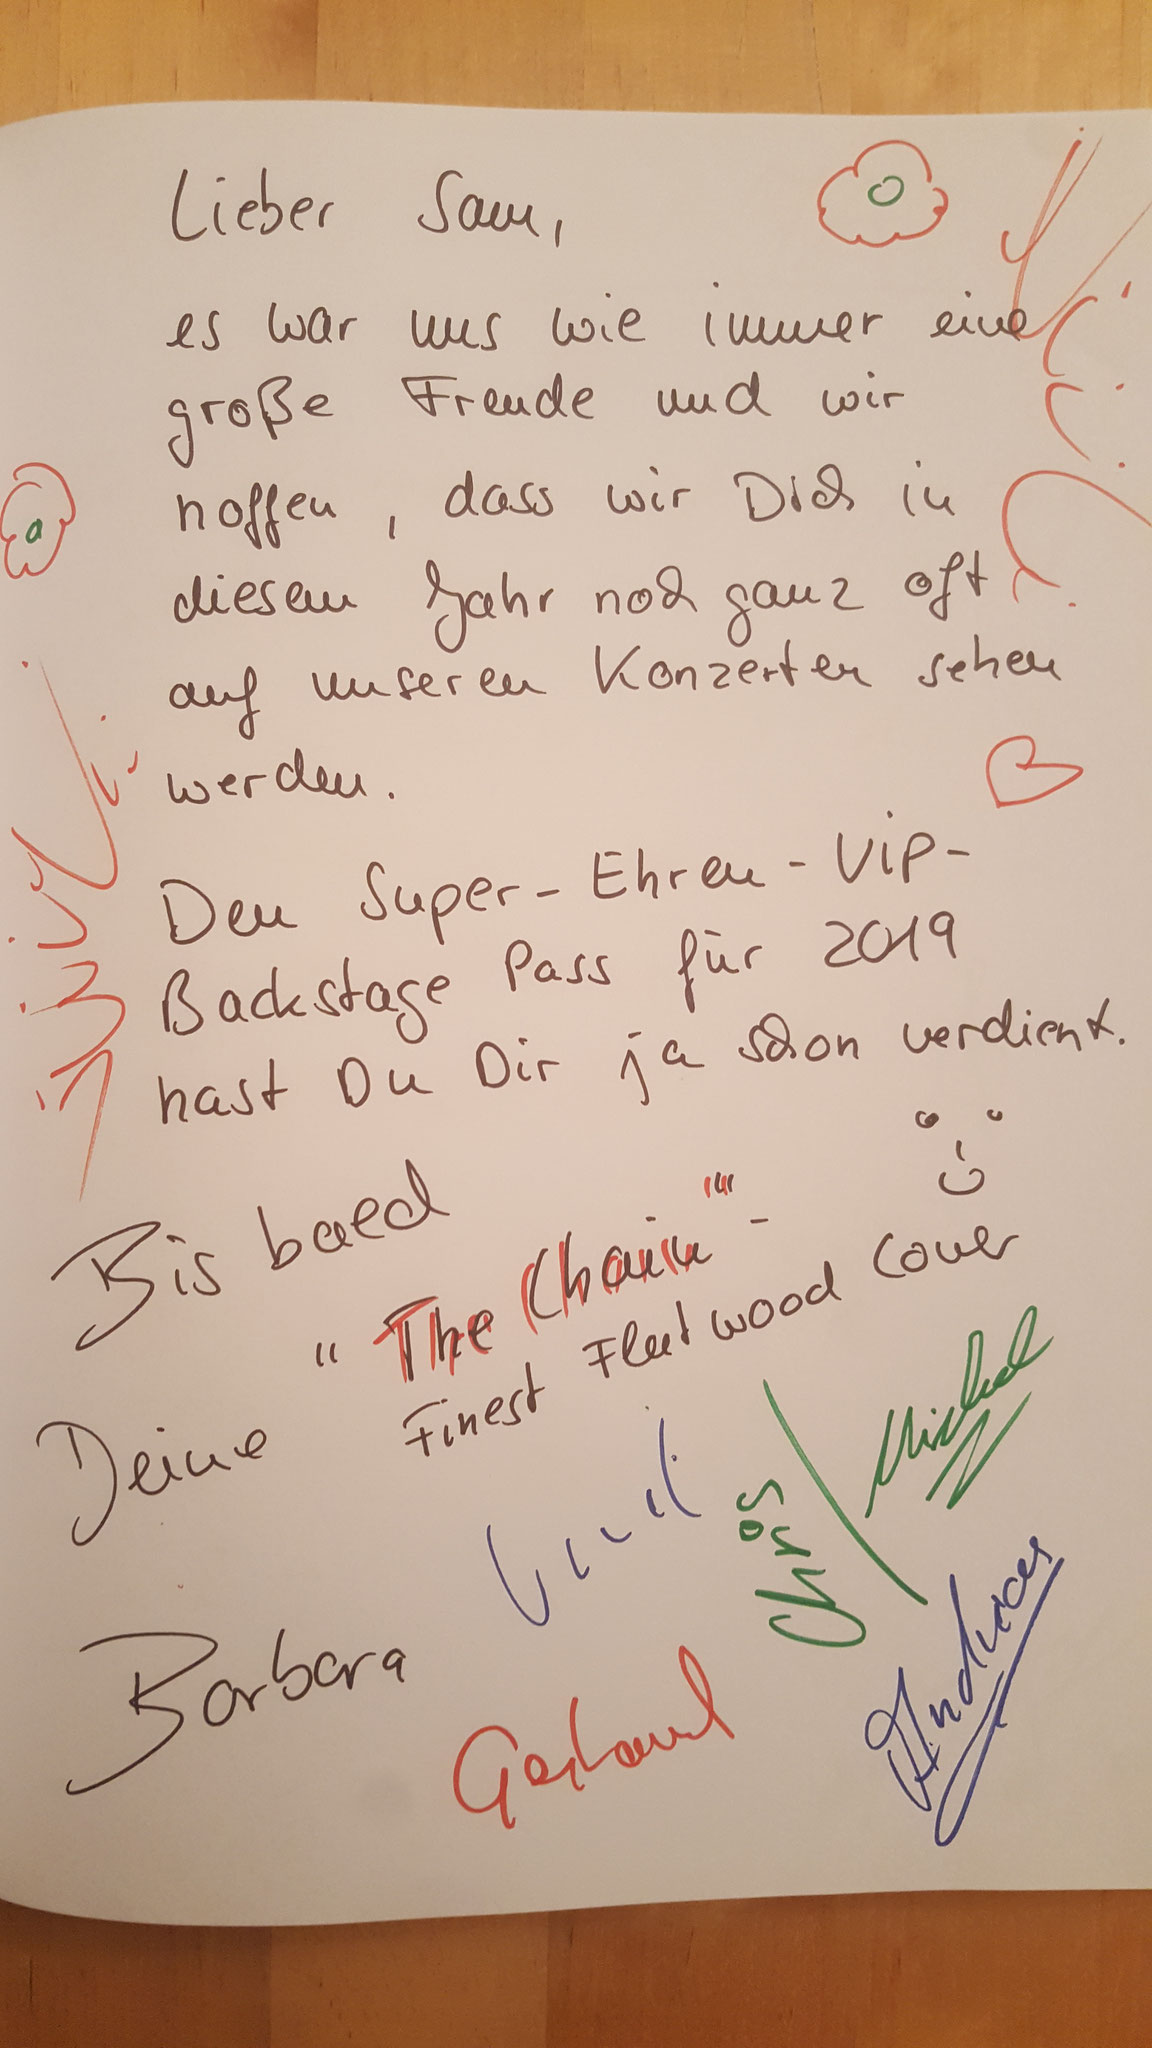 Lieber Sam,
es war uns wie immer eine
große Freude und wir
hoffen, dass wir Dich in
diesem Jahr noch ganz oft
auf unseren Konzerten sehen
werden.
Den Super-Ehren-VIP-
Backstage Pass für 2019
hast Du Dir ja schon verdient.
Bis bald
Deine
"The Chain" -
Finest Fleetwood Cover
Michael
Chris
Andreas
Barbara
Gerhard